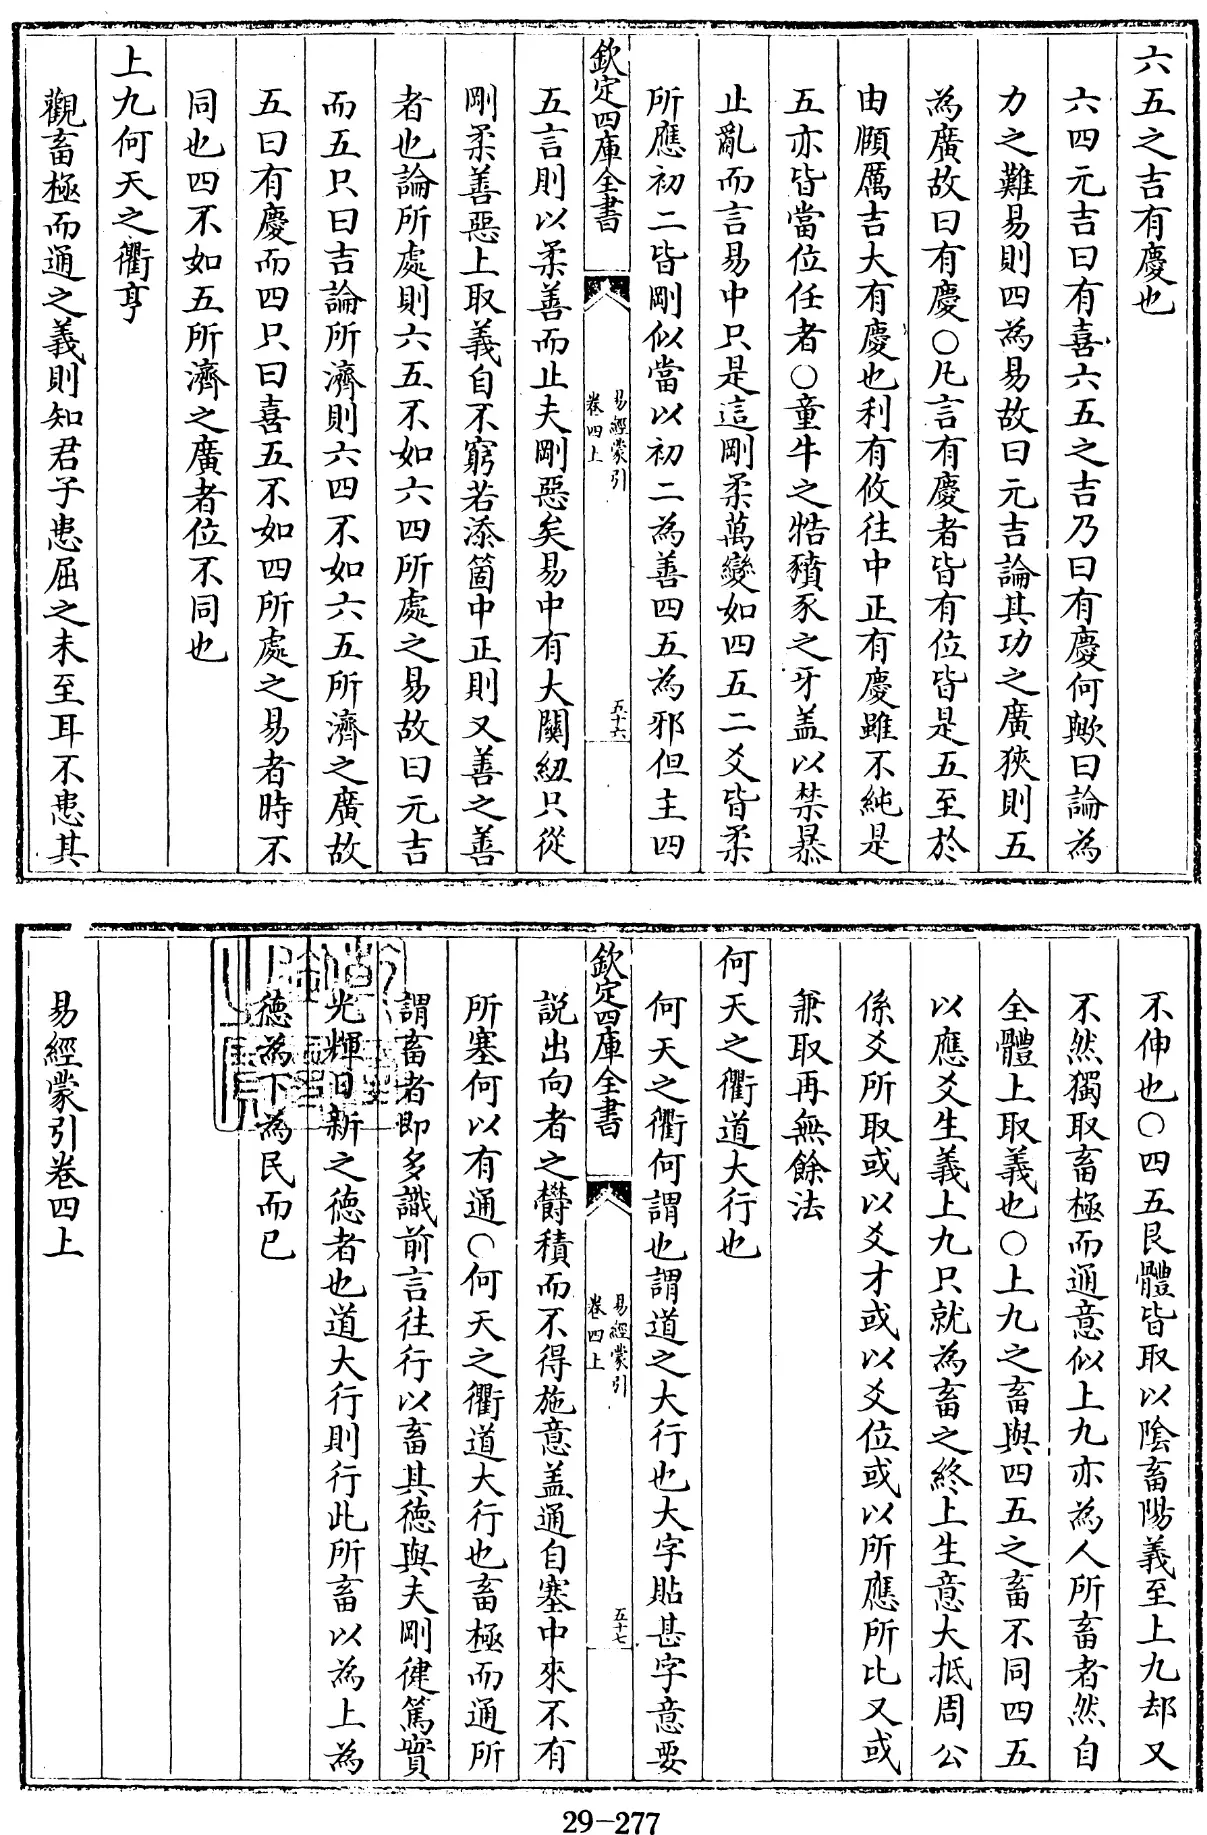 六五之吉有慶也
六四元吉曰有喜六五之吉乃曰有慶何歟曰論為
力之難易則四為易故曰元吉論其功之廣狹則五
為廣故曰有慶○凡言有慶者皆有位皆是五至於
由頤厲吉大有慶也利有攸往中正有慶雖不純是
五亦皆當位任者○童牛之牿豶豕之牙盖以禁暴
止亂而言易中只是這剛柔萬變如四五二爻皆柔
所應初二皆剛似當以初二為善四五為邪但主四
欽定四庫全書
易經蒙引
卷四上
五十六
五言則以柔善而止夫剛惡矣易中有大關紐只從
剛柔善惡上取義自不窮若添箇中正則又善之善
者也論所處則六五不如六四所處之易故曰元吉
而五只曰吉論所濟則六四不如六五所濟之廣故
五曰有慶而四只曰喜五不如四所處之易者時不
同也四不如五所濟之廣者位不同也
上九何天之衢亨
觀畜極而通之義則知君子患屈之未至耳不患其
不伸也○四五艮體皆取以陰畜陽義至上九却又
不然獨取畜極而通意似上九亦為人所畜者然自
全體上取義也○上九之畜與四五之畜不同四五
以應爻生義上九只就為畜之終上生意大抵周公
係爻所取或以爻才或以爻位或以所應所比又或
兼取再無餘法
何天之衢道大行也
何天之衢何謂也謂道之大行也大字貼甚字意要
欽定四庫全書
易經蒙引
卷四上
五十七
説出向者之欝積而不得施意盖通自塞中來不有
所塞何以有通○何天之衢道大行也畜極而通所
謂畜者即多識前言往行以畜其德與夫剛健篤實
光輝日新之德者也道大行則行此所畜以為上為
德為下為民而已
易經蒙引卷四上
29-277